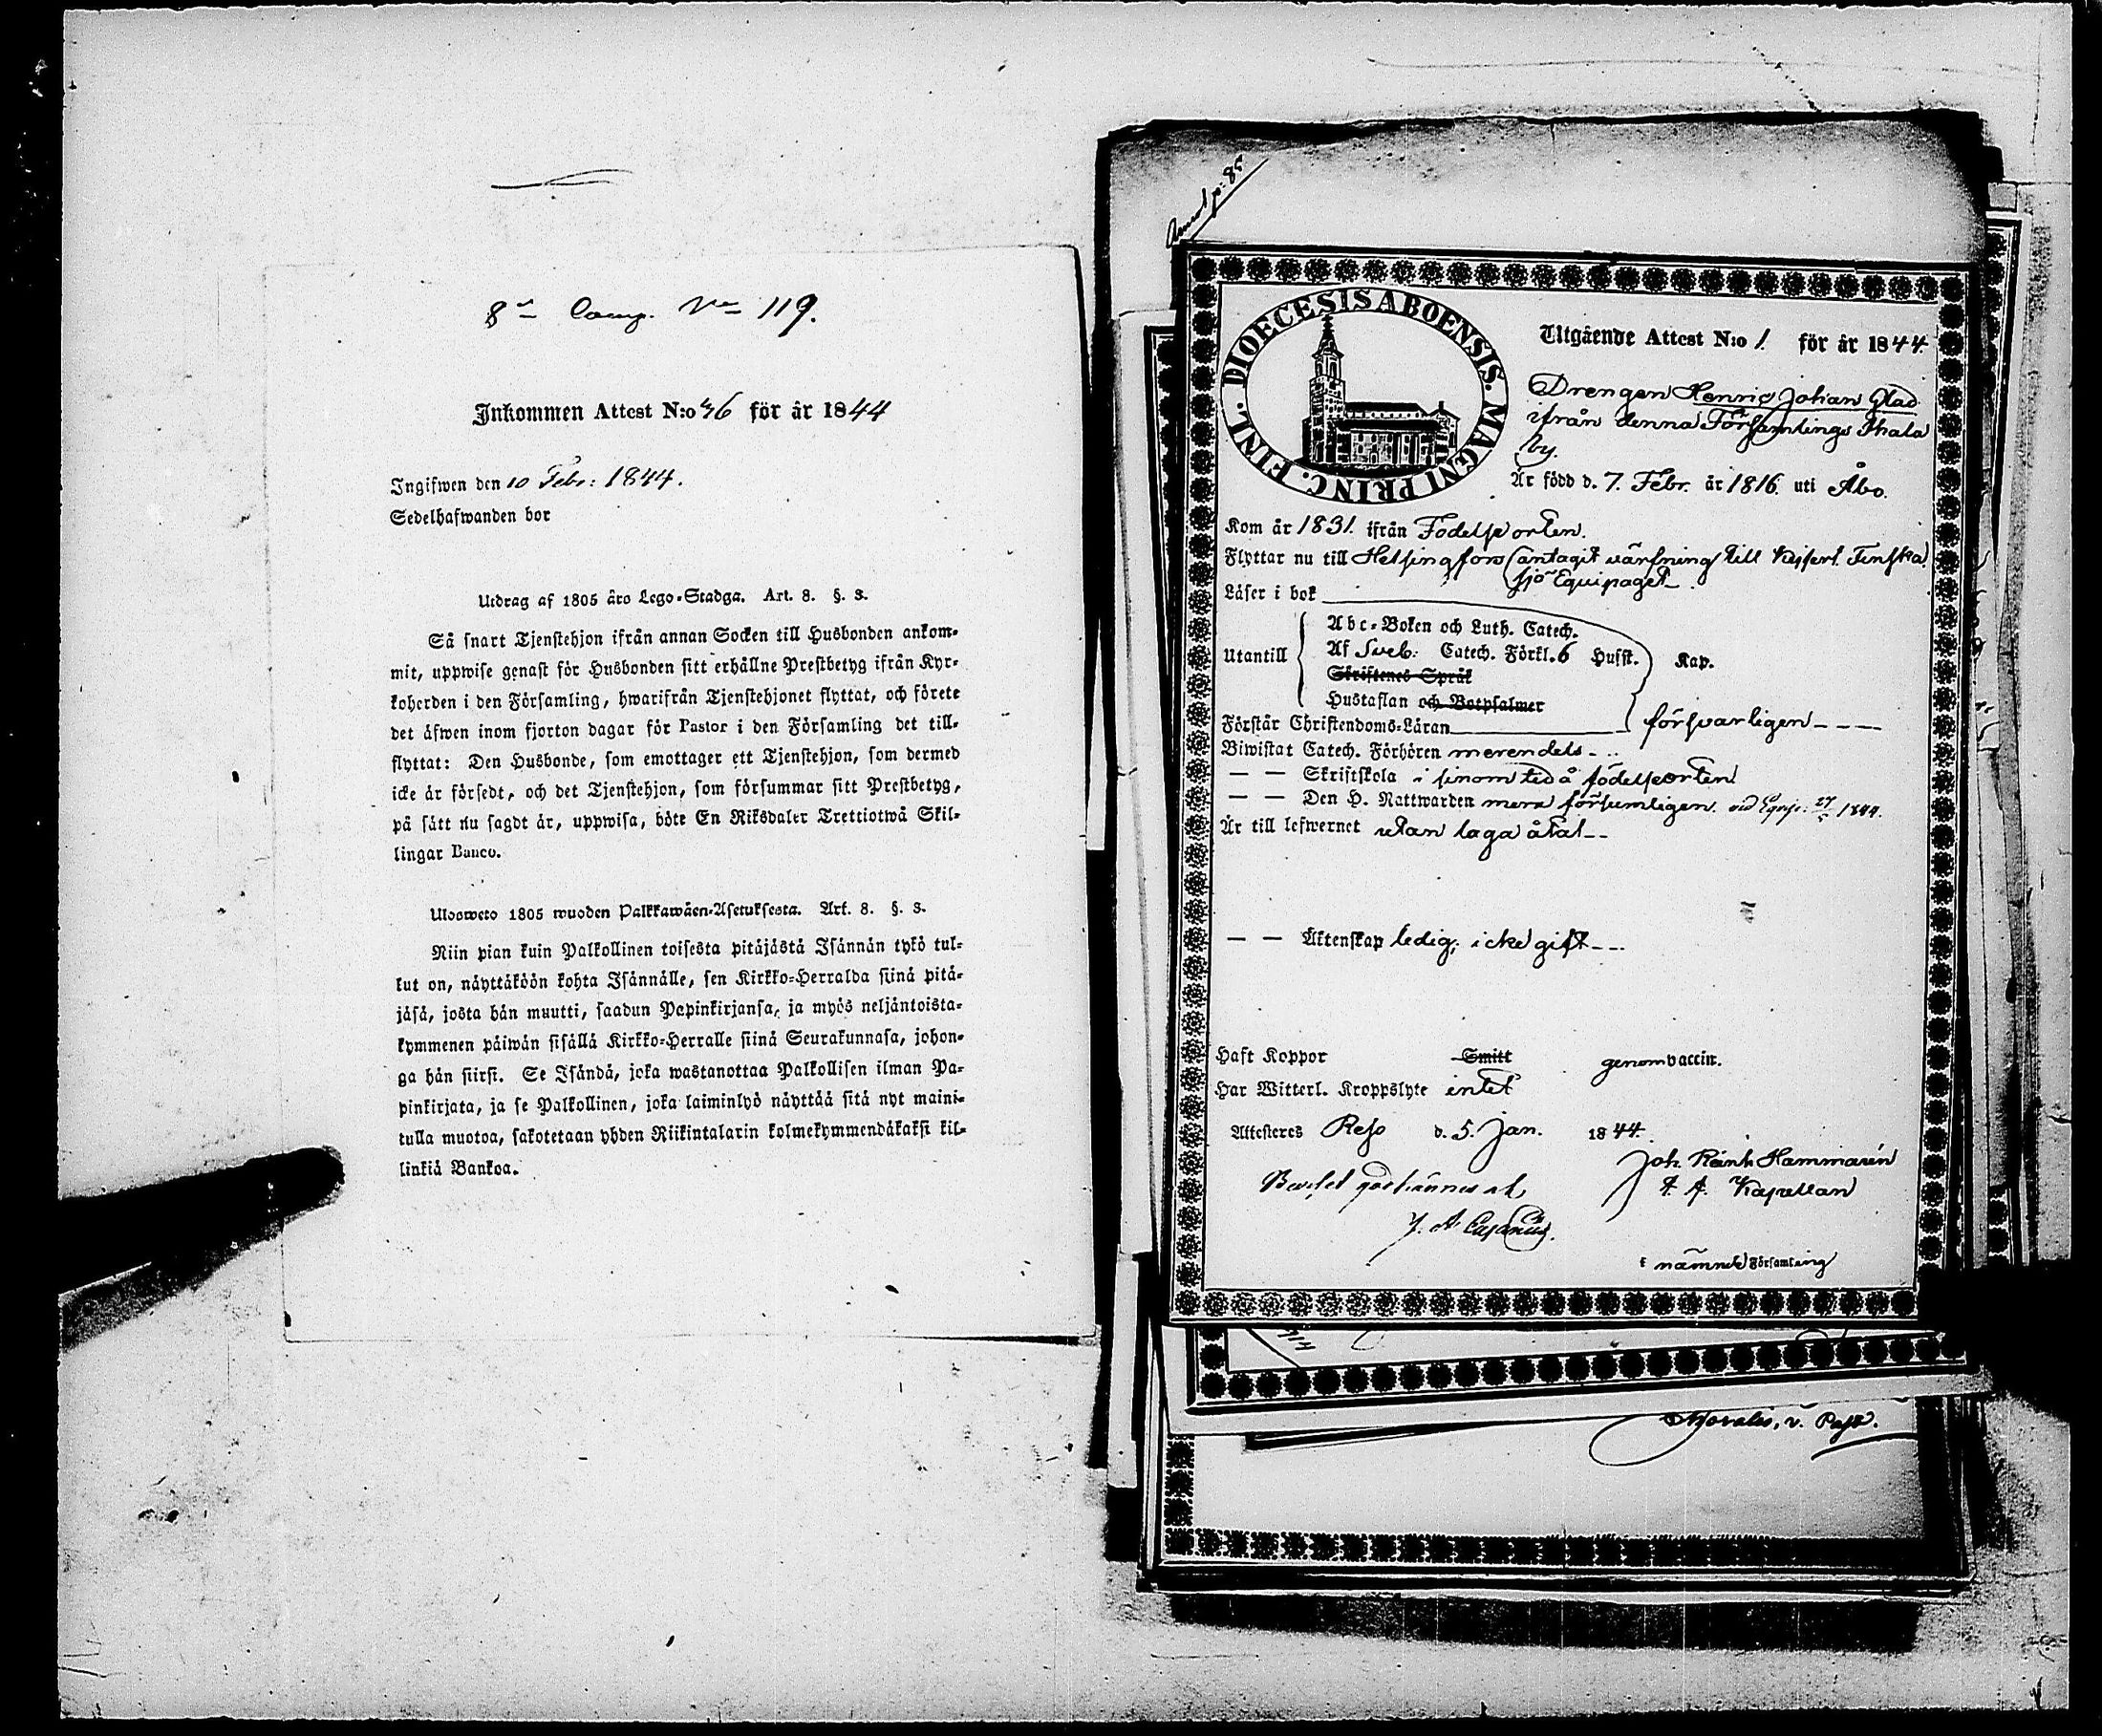 8de Comp. No 119.
Inkommen Attest N:o 46 för år 1844
Ingifwen den 10 Febr: 1844.
Sedelhafwanden bor
Utdrag af 1805 års Lego-Stadga. Art. 8. §. 3.
Så snart Tjenstehjon ifrån annan Socken till Husbonden ankom-
mit, uppwise genast för Husbonden sitt erhållne Prestbetyg ifrån Kyr-
koherden i den Församling, hwarifrån Tjenstehjonet flyttat, och förete
det äfwen inom fjorton dagar för Pastor i den Församling det till-
flyttat: Den Husbonde, som emottager ett Tjenstehjon, som dermed
icke är försedt, och det Tjenstehjon, som försummar sitt Prestbetyg,
på sätt nu sagdt är, uppwisa, böte En Riksdaler Trettiotwå Skil-
lingar Banco.
Ulosweto 1805 wuoden Palkkawäen-Asetuksesta. Art. 8. §. 3.
Niin pian kuin Palkollinen toisesta pitäjästä Isännän tykö tul-
lut on, näyttäköön kohta Isännälle, sen Kirkko-Herralda siinä pitä-
jäsä, josta hän muutti, saadun Papinkirjansa, ja myös neljäntoista-
kymmenen päiwän sisällä Kirkko-Herralle siinä Seurakunnasa, johon-
ga hän siirsi. Se Isändä, joka wastanottaa Palkollisen ilman Pa-
pinkirjata, ja se Palkollinen, joka laiminlyö näyttää sitä nyt maini-
tulla muotoa, sakotetaan yhden Riikintalarin kolmekymmendäkaksi kil-
linkiä Bankoa.
p: 85
DIOECESIS ABOENSIS. MAGNI PRINC. FINL.
Utgående Attest N:o 1. för år 1844.
Drengen Henric Johan Glad
ifrån denna Församlings Ihala
by.
Är född d. 7. Febr. år 1816. uti Åbo.
Kom år 1831. ifrån Födelseorten.
Flyttar nu till Helsingfors (antagit värfning till Kejserl. Finska
sjö Equipaget.
Läser i bok
Abc-Boken och Luth. Catech.
Utantill Af Sveb: Catech. Förkl. 6 Hufst. Kap.
Skriftenes Språk
Hustaflan och Botpsalmer
Förstår Christendoms-Läran försvarligen
Biwistat Catech. Förhören merendels
— — Skriftskola i sinom tid å födelseorten
— — Den H. Nattwarden mera försumligen. vid Eqvip: 1844.
Är till lefwernet utan laga åtal
— — Äktenskap ledig; icke gift
Haft Koppor Smitt genom vaccin.
Har Witterl. Kroppslyte intet
Attesteres Reso d. 5. Jan. 1844.
Joh. Hammarén
Kapellan
Beviset godkännes af
i nämnde Församling
v. Past.